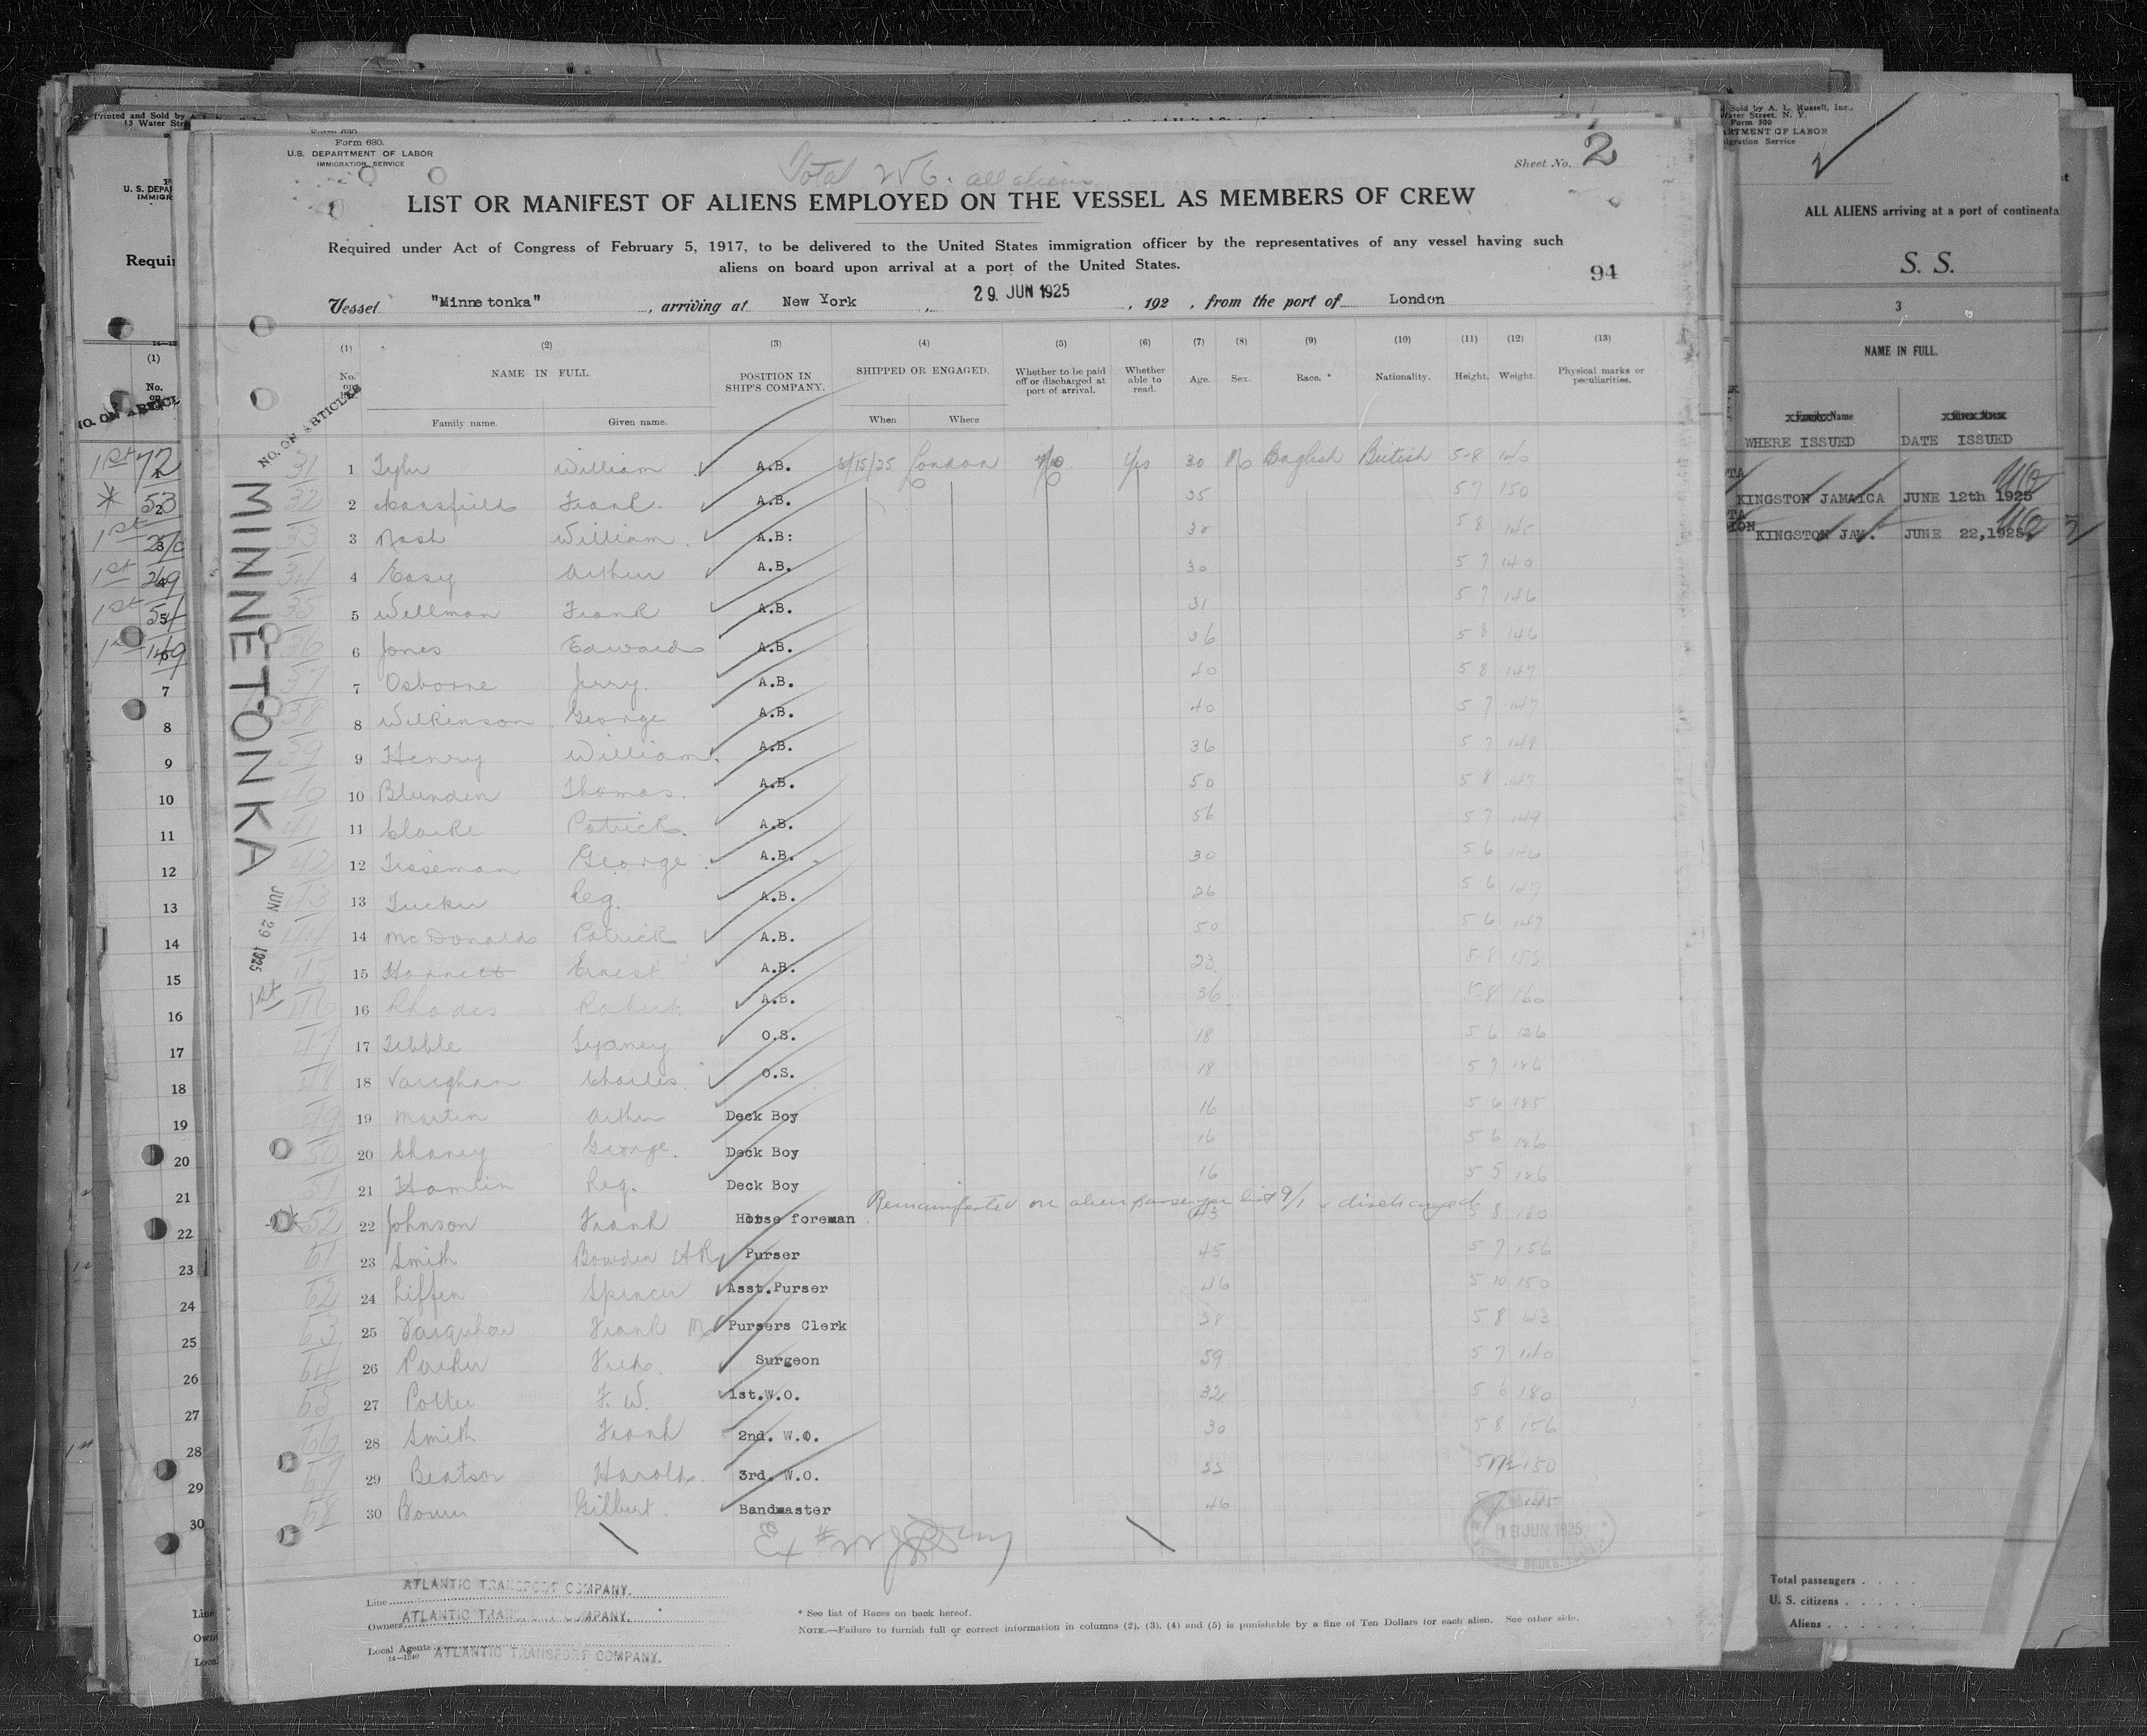 Form 680.
U.S. DEPARTMENT OF LABOR
IMMIGRATION SERVICE
Total 256. all aliens
Sheet No. 2
LIST OR MANIFEST OF ALIENS EMPLOYED ON THE VESSEL AS MEMBERS OF CREW
Required under Act of Congress of February 5, 1917, to be delivered to the United States immigration officer by the representatives of any vessel having such
aliens on board upon arrival at a port of the United States.
94
Vessel "Minnetonka", arriving at New York, 29. JUN 1925, 192 , from the port of London
(1) (2) (3) (4) (5) (6) (7) (8) (9) (10) (11) (12) (13)
No. on NAME IN FULL. POSITION IN SHIP'S COMPANY. SHIPPED OR ENGAGED. Whether to be paid off or discharged at port of arrival. Whether able to read. Age. Sex. Race. * Nationality. Height. Weight. Physical marks or peculiarities.
Family name. Given name. When Where
NO. ON ARTICLES
MINNETONKA
JUN 29 1925
31 1 Tyler William A.B. 5/15/25 London No Yes 30 M English British 5-8 140
32 2 Mansfield Frank A.B. 35 5 7 150
33 3 Nash William A.B: 5 8 145
34 4 Easy Arthur A.B. 30 5 7 140
35 5 Wellman Frank A.B. 31 5 7 146
36 6 Jones Edward A.B. 36 5 8 146
37 7 Osborne Jerry A.B. 40 5 8 147
38 8 Wilkinson George A.B. 40 5 7 147
39 9 Henry William A.B. 36 5 7 148
40 10 Blunden Thomas. A.B. 50 5 8 147
41 11 Clarke Patrick. A.B. 56 5 7 149
42 12 Tisseman George A.B. 30 5 6 146
43 13 Tucker Reg. A.B. 26 5 6 147
44 14 McDonald Patrick A.B. 50 5 6 147
45 15 Harnett Ernest A.B. 23 5-8
1st 46 16 Rhodes Robert A.B. 36 5 8 160
47 17 Tibble Sydney O.S. 18 5 6 126
48 18 Vaughan Charles O.S. 18 5 7
49 19 Martin Arthur Deck Boy 16 5 6
50 20 Chaney George. Deck Boy 16 5 6
51 21 Hamlin Reg. Deck Boy 16 5 5
52 22 Johnson Frank Horse foreman Remanifested on alien passenger list 9/1 & discharged
61 23 Smith Bowden A R Purser 45 5 7 156
62 24 Liffen Spencer Asst.Purser 46 5 10 150
63 25 Farquhar Frank M Pursers Clerk 5 8
64 26 Parker Fred. Surgeon 59 5 7 140
65 27 Potter F. W. 1st.W.O. 32 5 6 180
66 28 Smith Frank 2nd. W.O. 30 5 8 156
67 29 Beatson Harold 3rd. W.O. 150
68 30 Gilbert. Bandmaster 46 5 7 145
18 JUN. 1925
Line ATLANTIC TRANSPORT COMPANY.
Owners ATLANTIC TRANSPORT COMPANY.
Local Agents ATLANTIC TRANSPORT COMPANY.
14—1240
* See list of Races on back hereof.
NOTE.—Failure to furnish full or correct information in columns (2), (3), (4) and (5) is punishable by a fine of Ten Dollars for each alien. See other side.
Printed and Sold by
13 Water Str
U. S. DEPA
IMMIGR
Requi
(1)
No.
on
1st 72
* 53
1st 270
1st 269
1st 54
7
8
9
10
11
12
13
14
15
16
17
18
19
20
21
22
23
24
25
26
27
28
29
30
Sold by A. L. Russell, Inc.,
Water Street, N. Y.
Form 500
ARTMENT OF LABOR
migration Service
ALL ALIENS arriving at a port of continenta
S. S.
3
NAME IN FULL.
Family Name
WHERE ISSUED DATE ISSUED
KINGSTON JAMAICA JUNE 12th 1925
KINGSTON JAM. JUNE 22,1925
Total passengers
U. S. citizens
Aliens